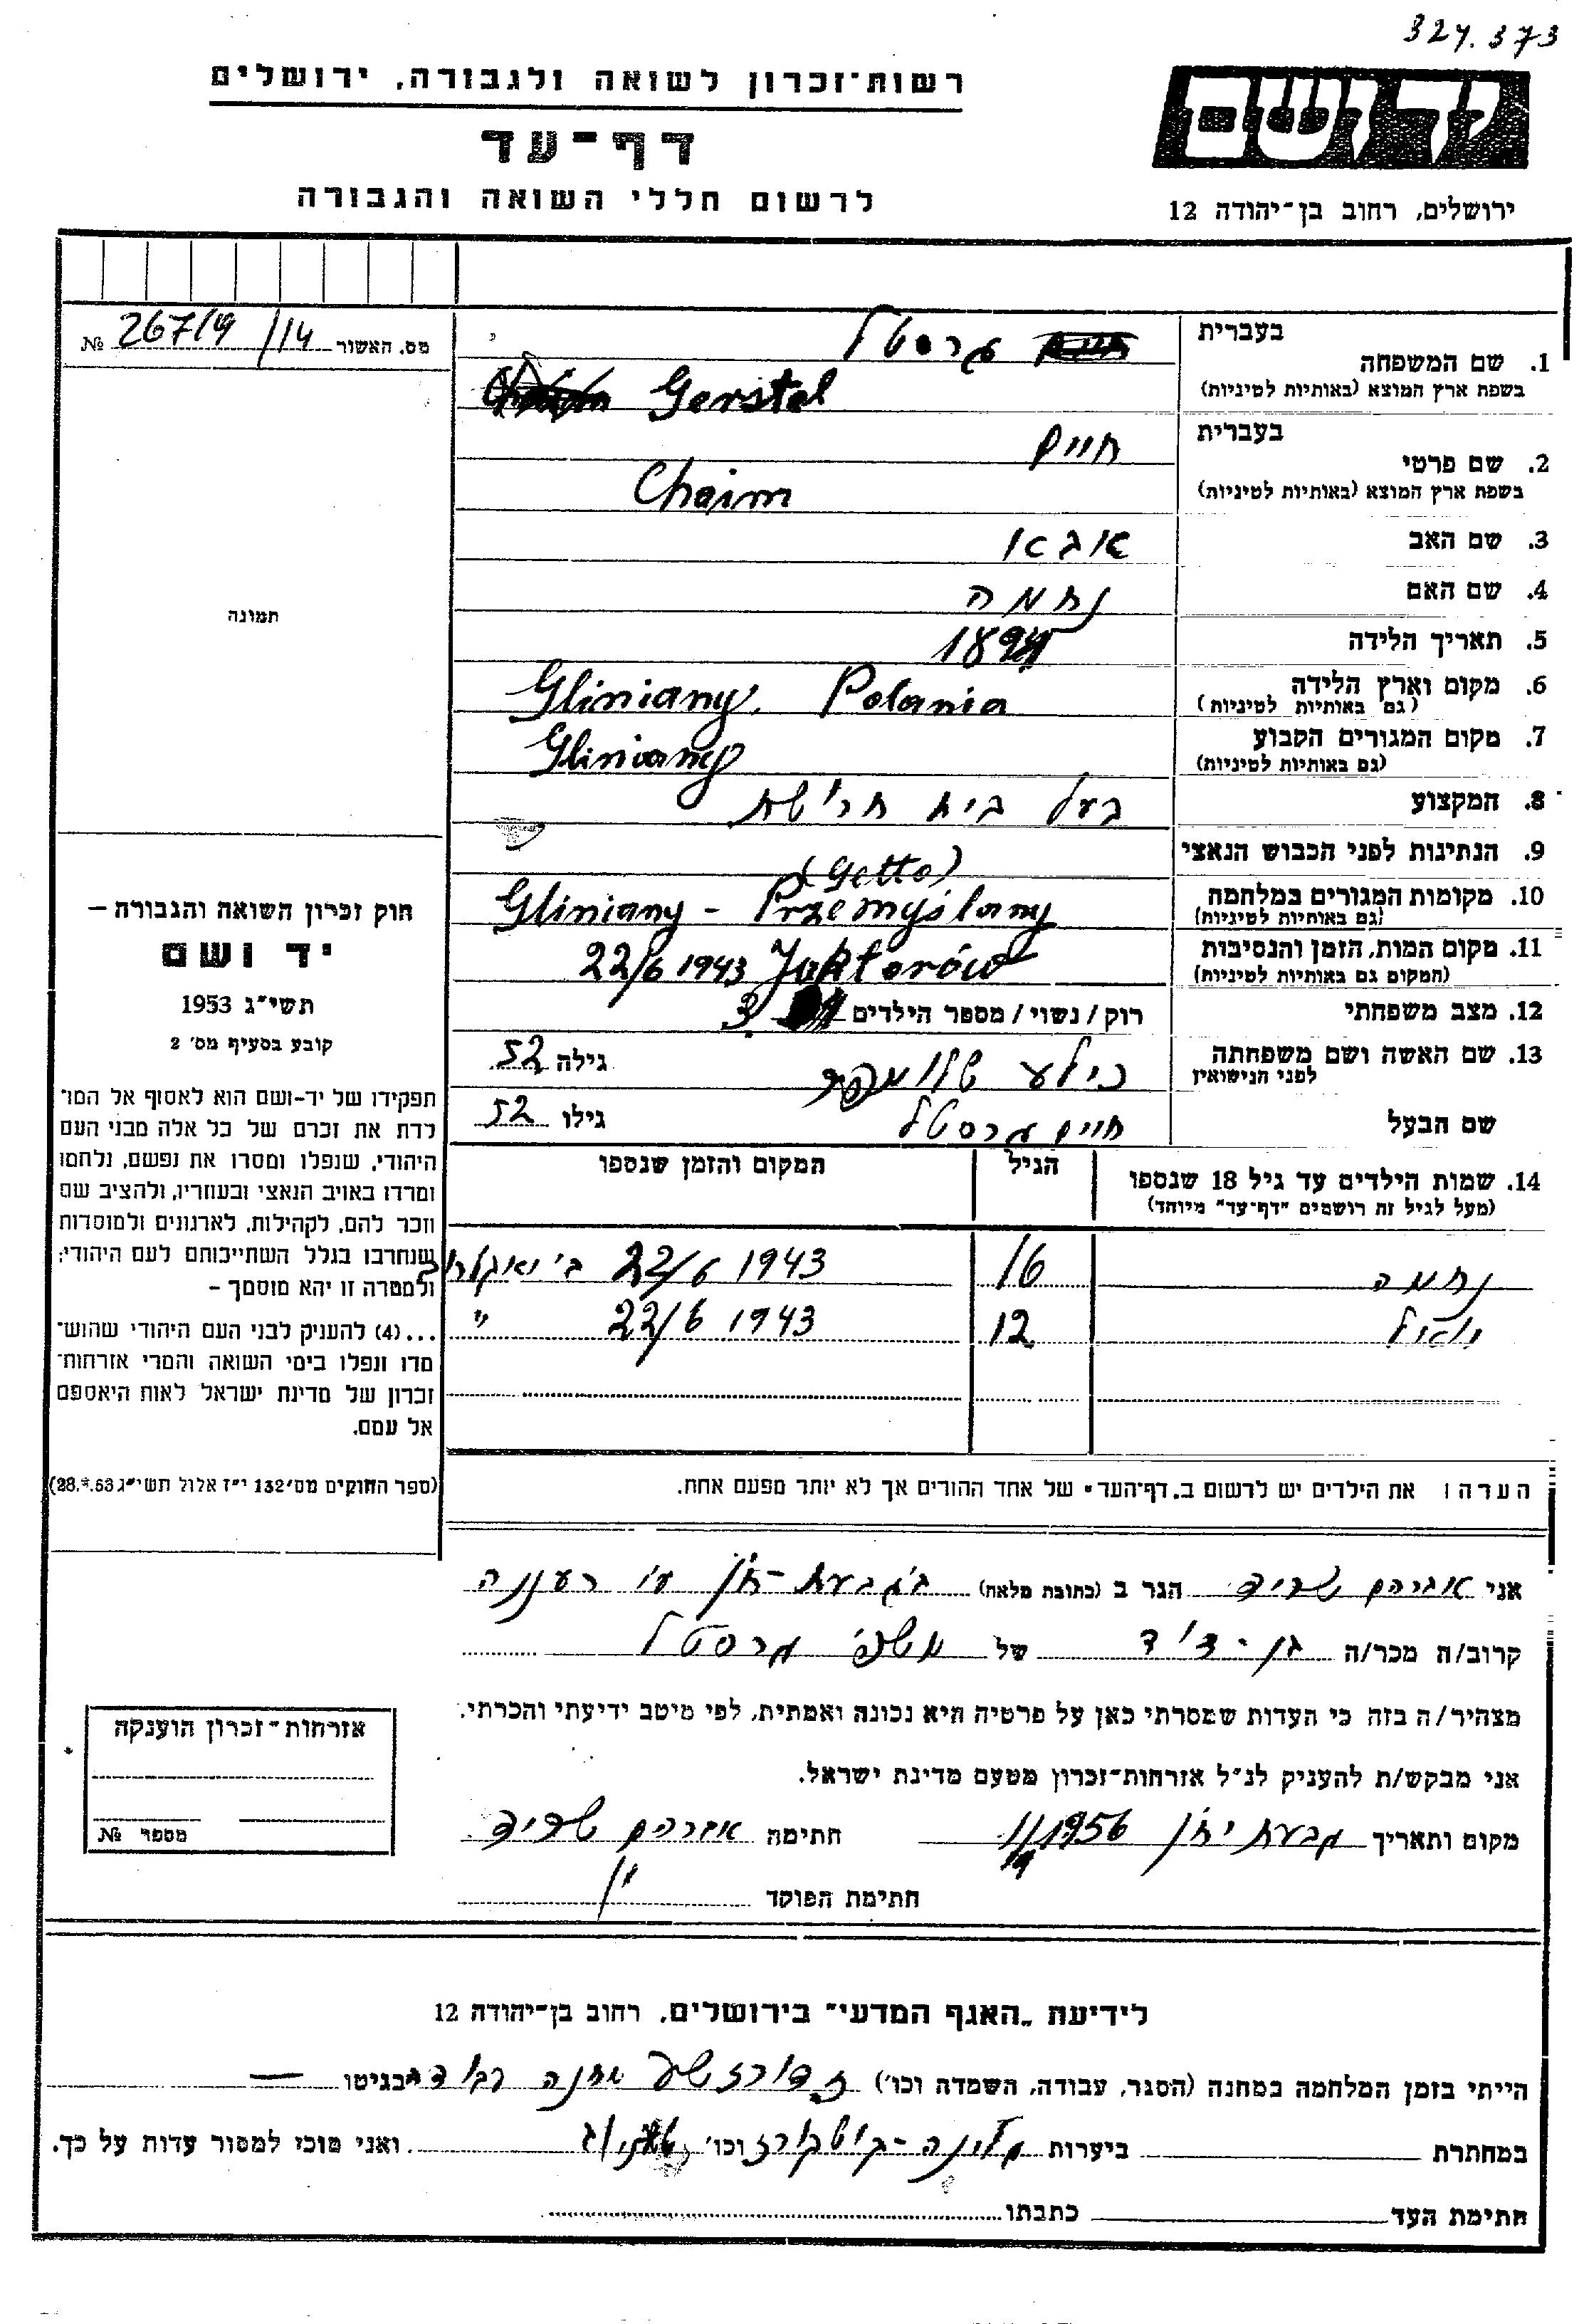 327.373
רשות־זכרון לשואה ולגבורה, ירושלים
דף־עד
לרשום חללי השואה והגבורה
ידושם
ירושלים, רחוב בן־יהודה 12
מס. האשור 14/ 267/19 №
תמונה
חוק זכרון השואה והגבורה –
יד ושם
תשי״ג 1953
קובע בסעיף מס׳ 2
תפקידו של יד-ושם הוא לאסוף אל המו־
לדת את זכרם של כל אלה מבני העם
היהודי, שנפלו ומסרו את נפשם, נלחמו
ומרדו באויב הנאצי ובעוזריו, ולהציב שם
וזכר להם, לקהילות, לארגונים ולמוסדות
שנחרבו בגלל השתייכותם לעם היהודי;
ולמטרה זו יהא מוסמך –
...(4) להעניק לבני העם היהודי שהוש־
מדו ונפלו בימי השואה והמרי אזרחות־
זכרון של מדינת ישראל לאות היאספם
אל עמם.
(ספר החוקים מס׳ 132 י״ז אלול תשי״ג 28.8.53)
1. שם המשפחה בעברית גרסטל
בשפת ארץ המוצא (באותיות לטיניות) Gerstel
2. שם פרטי בעברית חיים
בשפת ארץ המוצא (באותיות לטיניות) Chaim
3. שם האב
4. שם האם נחמה
5. תאריך הלידה
6. מקום וארץ הלידה Gliniany. Polania
(גם באותיות לטיניות)
7. מקום המגורים הקבוע Gliniany
(גם באותיות לטיניות)
8. המקצוע בעל בית חרישת
9. הנתינות לפני הכבוש הנאצי
(Getto)
10. מקומות המגורים במלחמה Gliniany - Przemyślany
(גם באותיות לטיניות)
11. מקום המות, הזמן והנסיבות 22/6 1943 Jaktorów
(המקום גם באותיות לטיניות)
12. מצב משפחתי רוק / נשוי / מספר הילדים 3
13. שם האשה ושם משפחתה גילה 52
לפני הנישואין
שם הבעל חיים גרסטל גילו 52
14. שמות הילדים עד גיל 18 שנספו הגיל המקום והזמן שנספו
(מעל לגיל זה רושמים "דף־עד" מיוחד)
נחמה 16 22/6 1943
יואל 12 22/6 1943 "
הערה: את הילדים יש לרשום ב„דף־העד" של אחד ההורים אך לא יותר מפעם אחת.
אני אברהם שריד הגר ב (כתובת מלאה) בגבעת-חן ע״י רעננה
קרוב/ה מכר/ה בן-דוד של משפ׳ גרסטל
מצהיר/ה בזה כי העדות שמסרתי כאן על פרטיה היא נכונה ואמתית, לפי מיטב ידיעתי והכרתי.
אני מבקש/ת להעניק לנ״ל אזרחות־זכרון מטעם מדינת ישראל.
מקום ותאריך גבעת חן 1956 חתימה אברהם שריד
חתימת הפוקד
אזרחות־זכרון הוענקה
מספר №
לידיעת „האגף המדעי" בירושלים, רחוב בן־יהודה 12
הייתי בזמן המלחמה במחנה (הסגר, עבודה, השמדה וכו׳) בגיטו —
במחתרת ביערות וכו׳ ואני מוכן למסור עדות על כך.
חתימת העד כתבתו